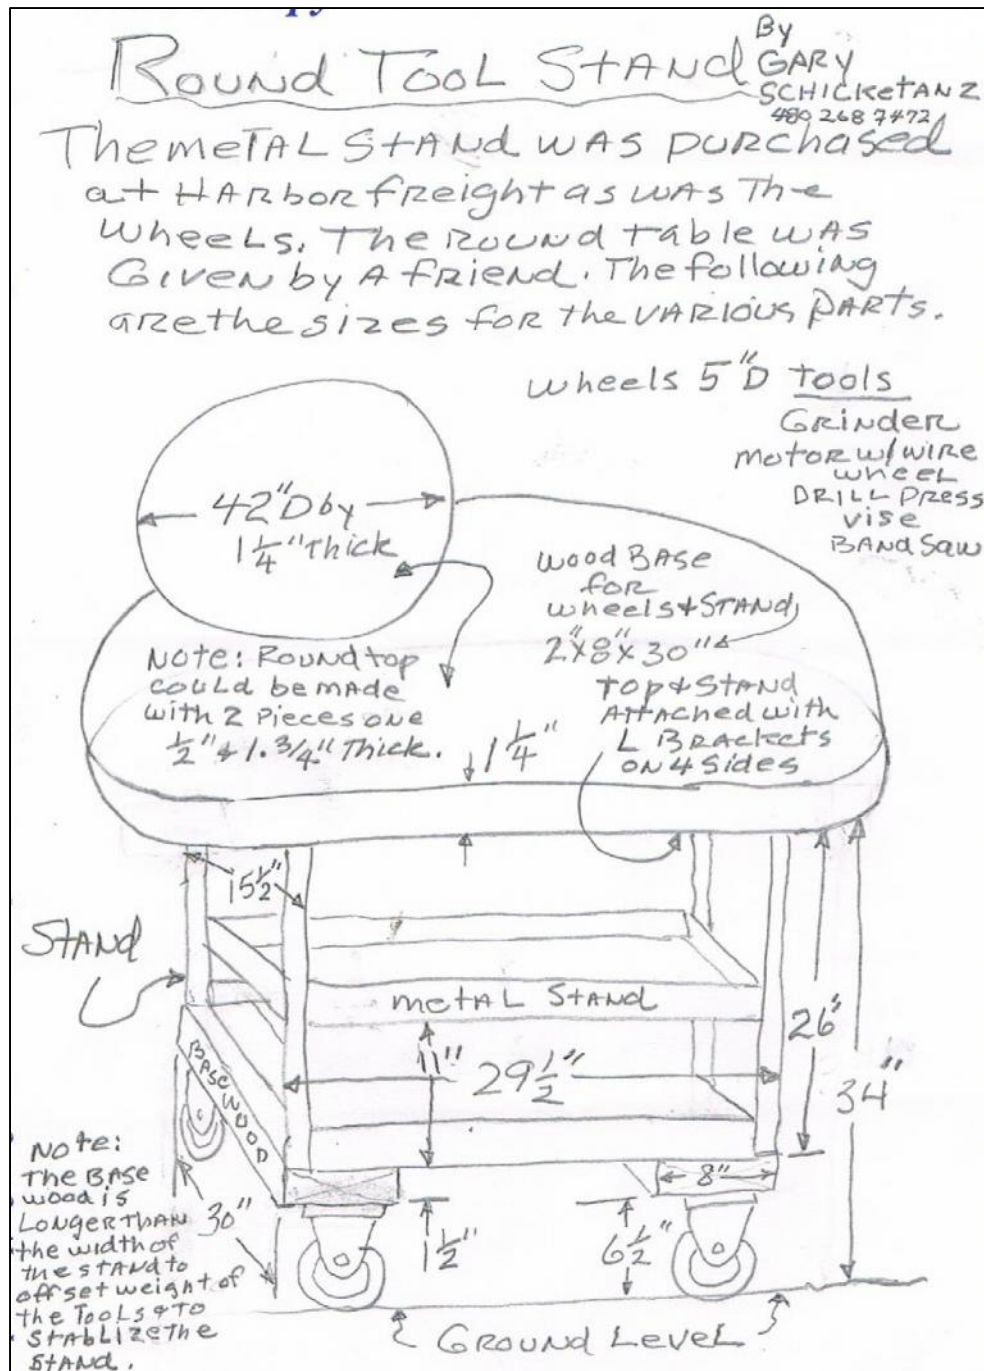 Round Tool Stand
By
GARY
SCHICKETANZ
480 268 7472
The metal Stand was purchased
at Harbor freight as was The
wheels. The Round table was
Given by A friend. The following
are the sizes for the various parts.
wheels 5"D
tools
Grinder
motor w/ wire
wheel
DRILL PRESS
vise
BAND SAW
42"D by
1 1/4" Thick
wood Base
for
wheels & STAND
2"x8"x30"
Note: Round top
could be made
with 2 pieces one
1/2" & 1. 3/4" Thick.
Top & Stand
Attached with
L Brackets
on 4 sides
1 1/4"
15 1/2"
Stand
metal Stand
11"
29 1/2"
26"
34"
BASE WOOD
8"
30"
1 1/2"
6 1/2"
Note:
The BASE
wood is
Longer than
the width of
the stand to
offset weight of
the Tools & To
Stablize The
Stand.
Ground Level